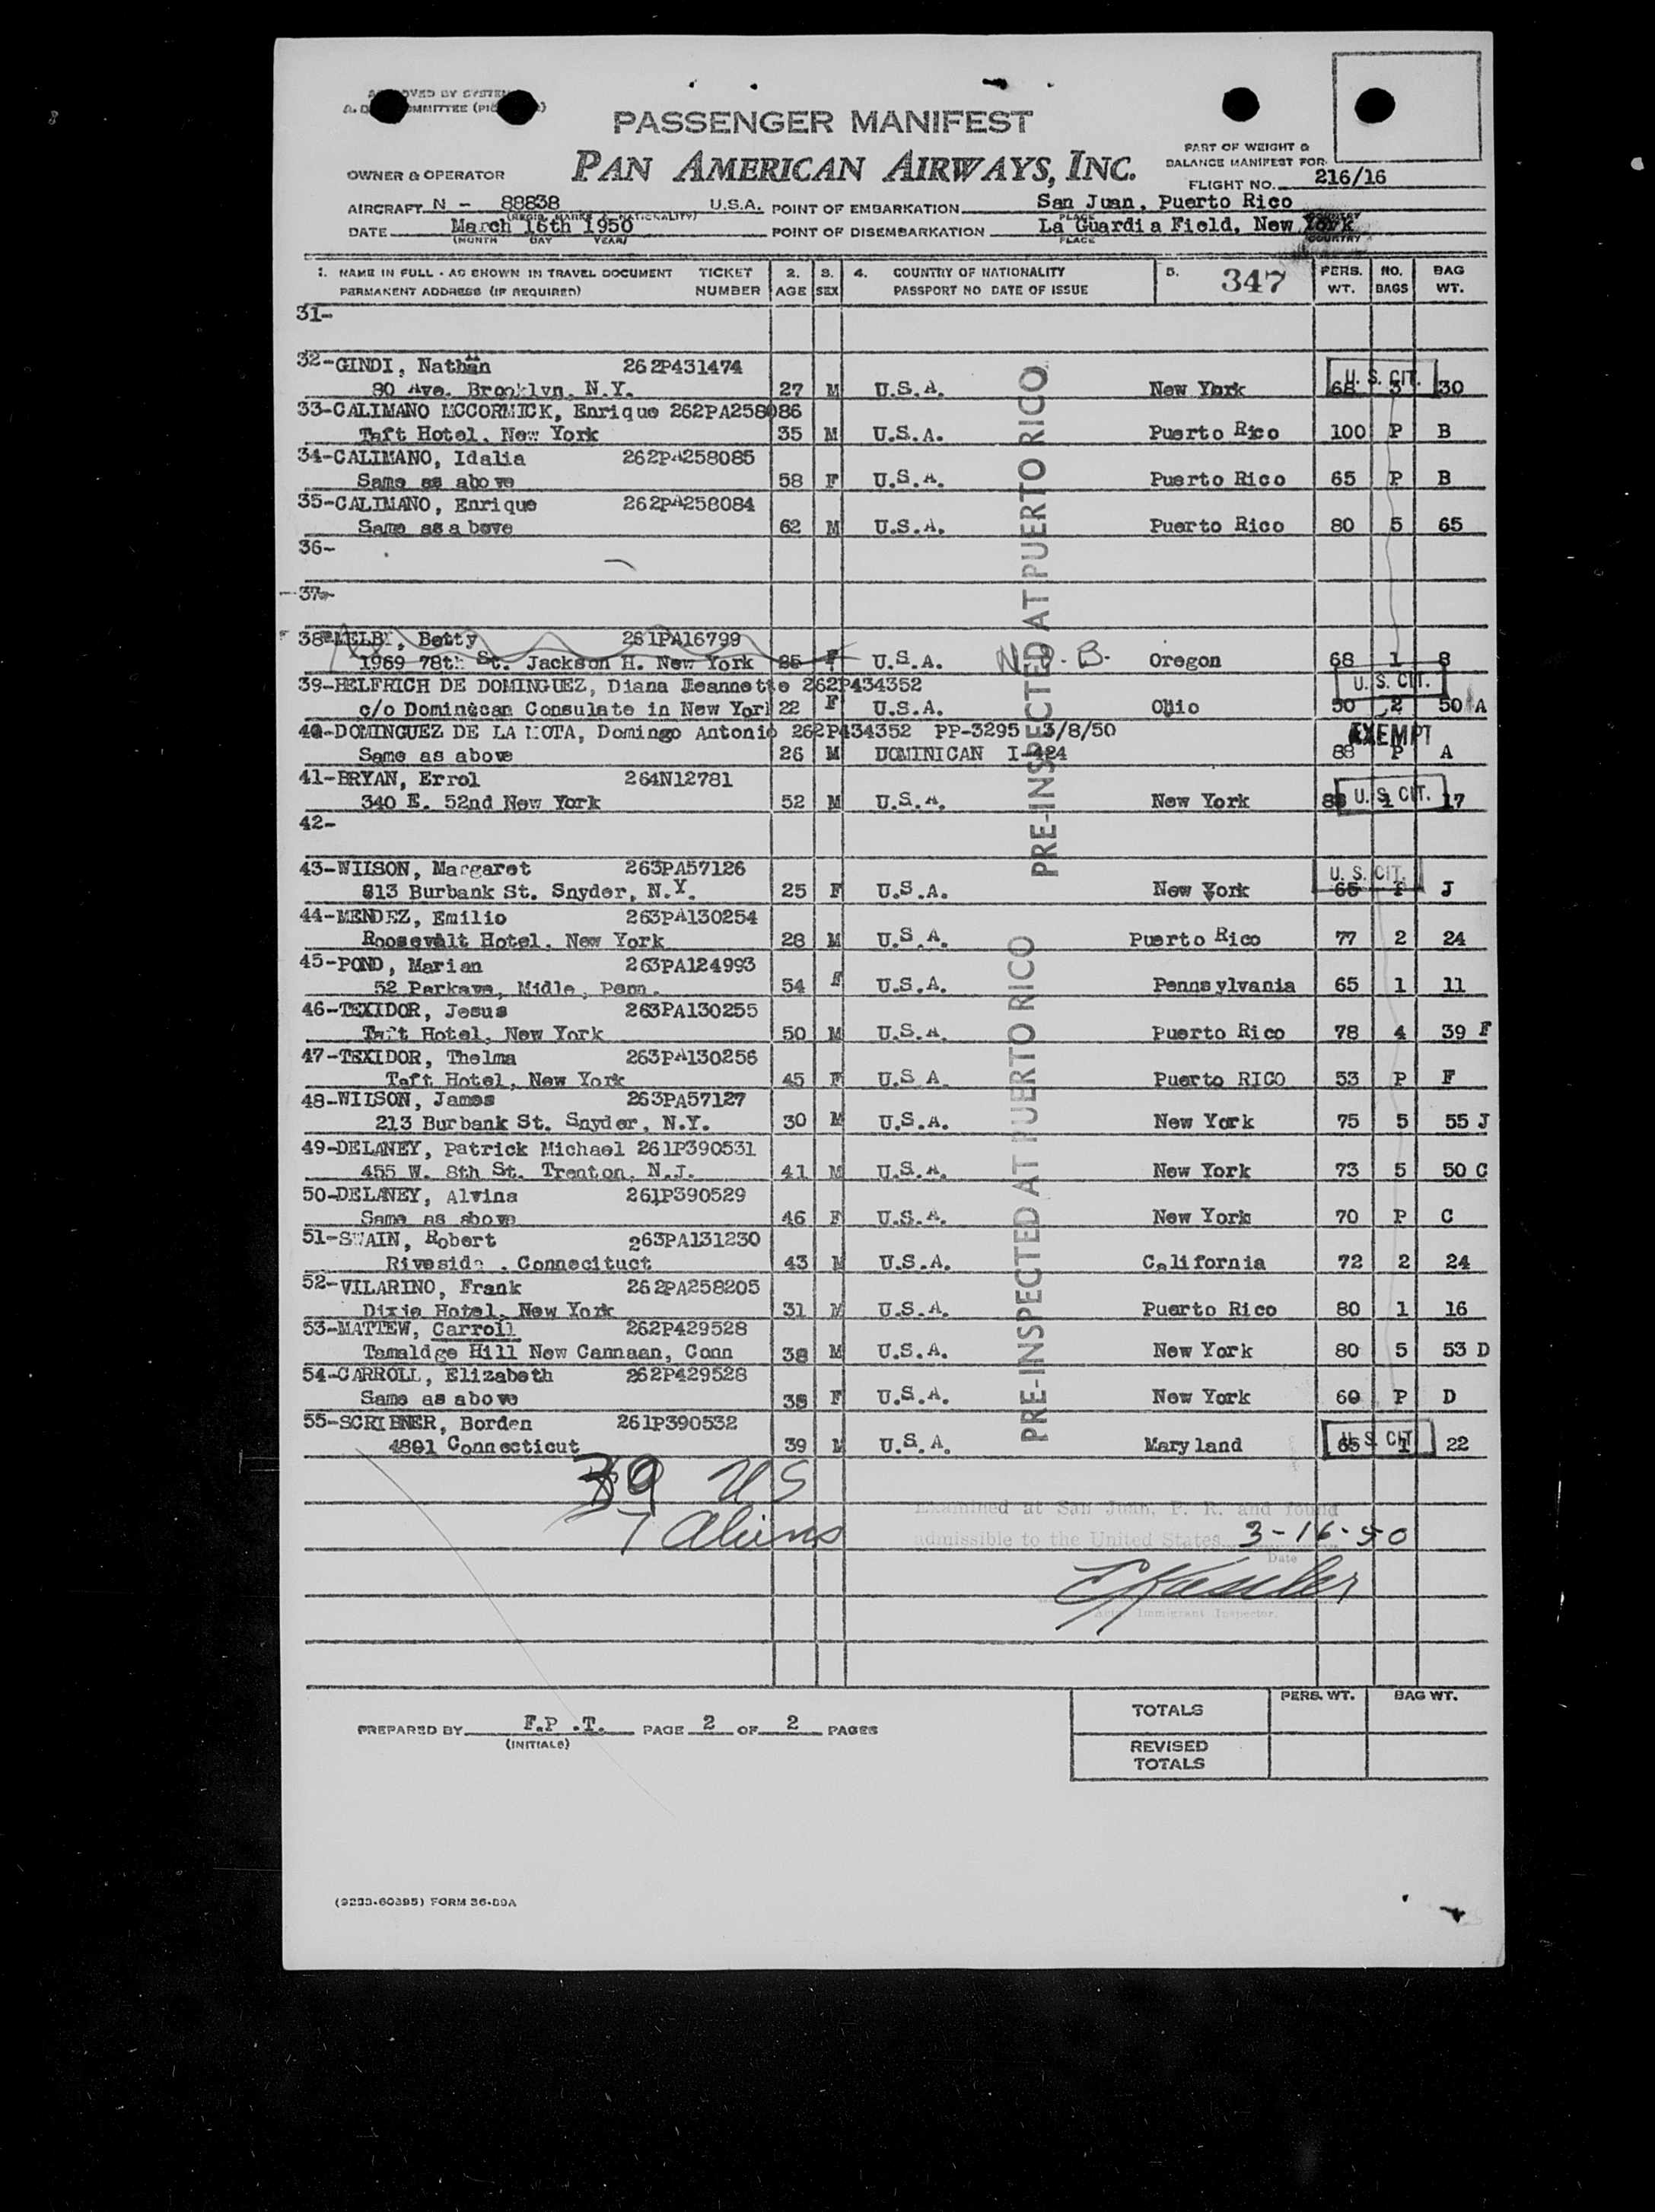 PASSENGER MANIFEST
PAN AMERICAN AIRWAYS, INC.
PART OF WEIGHT &
BALANCE MANIFEST FOR
OWNER & OPERATOR
FLIGHT NO. 216/16
AIRCRAFT N - 88838 U.S.A. POINT OF EMBARKATION San Juan, Puerto Rico
(REGIS. MARKS & NATIONALITY) PLACE COUNTRY
DATE March 16th 1950 POINT OF DISEMBARKATION La Guardia Field, New York
(MONTH DAY YEAR) PLACE COUNTRY
1. NAME IN FULL - AS SHOWN IN TRAVEL DOCUMENT TICKET 2. 3. 4. COUNTRY OF NATIONALITY 5. 347 PERS. NO. BAG
PERMANENT ADDRESS (IF REQUIRED) NUMBER AGE SEX PASSPORT NO DATE OF ISSUE WT. BAGS WT.
31-
32-GINDI, Nathan 262P431474 U. S. CIT.
80 Ave. Brooklyn, N.Y. 27 M U.S.A. New York 68 3 30
33-CALIMANO MCCORMICK, Enrique 262PA258086
Taft Hotel, New York 35 M U.S.A. Puerto Rico 100 P B
34-CALIMANO, Idalia 262PA258085
Same as above 58 F U.S.A. Puerto Rico 65 P B
35-CALIMANO, Enrique 262PA258084
Same as a bove 62 M U.S.A. Puerto Rico 80 5 65
36-
37-
38-MELBY, Betty 261PA16799
1969 78th St. Jackson H. New York F U.S.A. N. B. Oregon 68 1 8
39-HELFRICH DE DOMINGUEZ, Diana Jeannette 262P434352 U. S. CIT.
c/o Dominican Consulate in New York 22 F U.S.A. Ohio 50 2 50 A
40-DOMINGUEZ DE LA MOTA, Domingo Antonio 262P434352 PP-3295 3/8/50 EXEMPT
Same as above 26 M DOMINICAN I-424 88 P A
41-BRYAN, Errol 264N12781
340 E. 52nd New York 52 M U.S.A. New York U. S. CIT. 17
42-
43-WIISON, Margaret 263PA57126 U. S. CIT.
213 Burbank St. Snyder, N.Y. 25 F U.S.A. New York 65 P J
44-MENDEZ, Emilio 263PA130254
Roosevalt Hotel, New York 28 M U.S.A. Puerto Rico 77 2 24
45-POND, Marian 263PA124993
52 Parkave, Midle, Penn. 54 F U.S.A. Pennsylvania 65 1 11
46-TEXIDOR, Jesus 263PA130255
Taft Hotel, New York 50 M U.S.A. Puerto Rico 78 4 39 F
47-TEXIDOR, Thelma 263PA130256
Taft Hotel, New York 45 F U.S.A. Puerto RICO 53 P F
48-WIISON, James 263PA57127
213 Burbank St. Snyder, N.Y. 30 M U.S.A. New York 75 5 55 J
49-DELANEY, Patrick Michael 261P390531
455 W. 8th St. Trenton, N.J. 41 M U.S.A. New York 73 5 50 C
50-DELANEY, Alvina 261P390529
Same as above 46 F U.S.A. New York 70 P C
51-SWAIN, Robert 263PA131230
Riveside, Connecituct 43 M U.S.A. California 72 2 24
52-VILARINO, Frank 262PA258205
Dixie Hotel, New York 31 M U.S.A. Puerto Rico 80 1 16
53-MATTEW, Carroll 262P429528
Tamaldge Hill New Cannaan, Conn 38 M U.S.A. New York 80 5 53 D
54-CARROLL, Elizabeth 262P429528
Same as above 38 F U.S.A. New York 60 P D
55-SCRIBNER, Borden 261P390532
4801 Connecticut 39 M U.S.A. Maryland 65 1 22
U. S. CIT
PRE-INSPECTED AT PUERTO RICO
PRE-INSPECTED AT PUERTO RICO
39 US
7 Aliens
Examined at San Juan, P. R. and found
admissible to the United States 3-16-50
Date
Immigrant Inspector.
PREPARED BY F.P .T. PAGE 2 OF 2 PAGES
(INITIALS)
PERS. WT. BAG WT.
TOTALS
REVISED
TOTALS